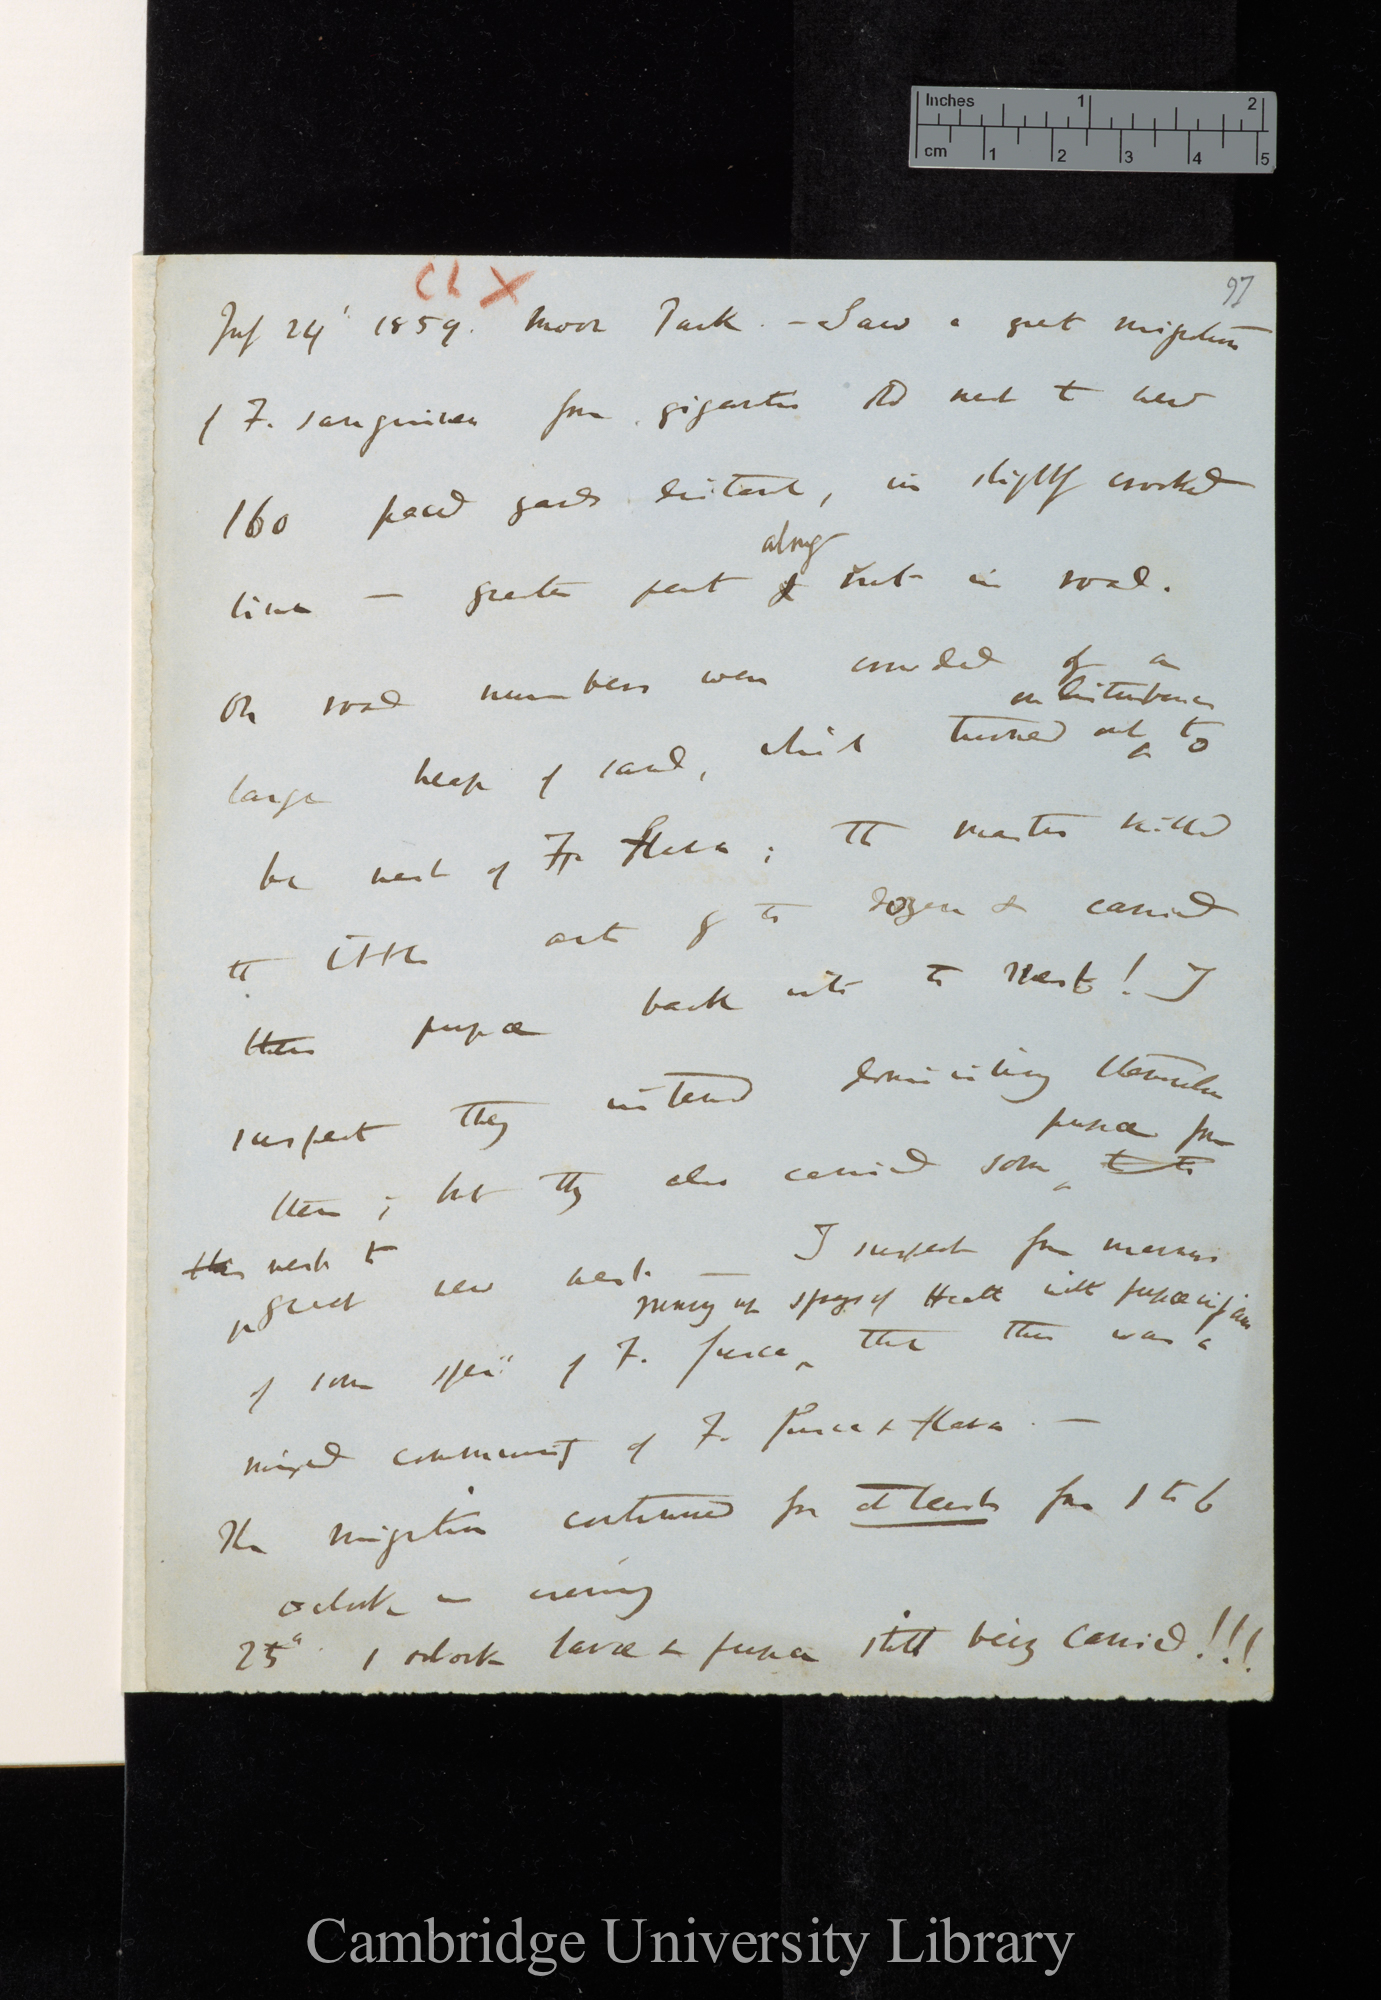 Inches 1 2
cm 1 2 3 4 5
Ch X
97
July 24' 1859. Moor Park. — Saw a great migration
of F. sanguinea from gigantic old nest to new
160 paced yards distant, in slightly crooked
along
line — greater part rut in road.
On road numbers were crowded on a
on disturbance
large heap of sand, which turned out to
be nest of F. flava; the masters killed
the little ants by the dozen & carried
their pupæ back into the nest! I
suspect they intend domiciling themselves
pupæ from
there; but they also carried some to the
this nest to
great new nest. — I suspect from manner
running up sprays of Heath with pupæ in jaws
of some specs of F. fusca, that this was a
mixed community of F. fusca & flava. —
The migration continued for at least from 1 to 6
oclock in evening
25th 1 oclock larvæ & pupæ still being carried!!!
Cambridge University Library